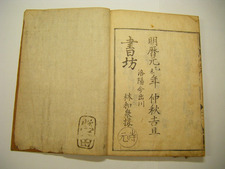 明暦元乙未年 仲秋吉旦
洛陽今出川
書坊 林和泉掾